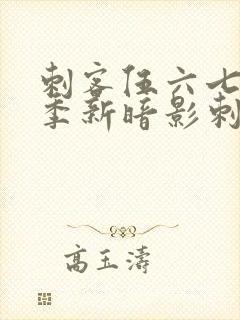 刺客伍六七
季新暗影刺
高玉涛